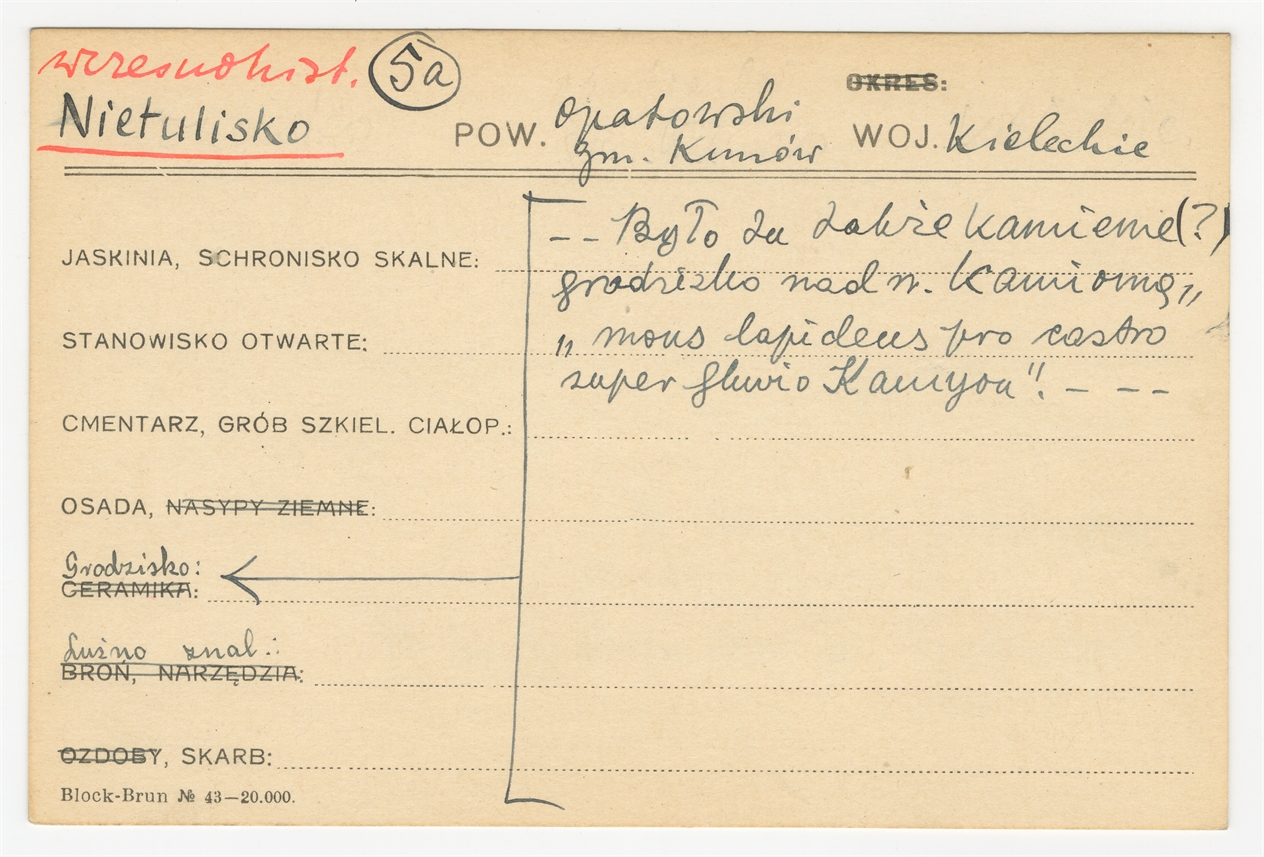 wczesnohist. 5a
Nietulisko POW. opatowski WOJ. Kieleckie OKRES:
gm. Kunów
-- Było tu także kamienne (?)
JASKINIA, SCHRONISKO SKALNE:
grodzisko nad r. Kamionną,,
STANOWISKO OTWARTE:
,, mons lapideus pro castro
super fluvio Kamyon". - - -
CMENTARZ, GRÓB SZKIEL. CIAŁOP.:
OSADA, NASYPY ZIEMNE:
Grodzisko:
CERAMIKA:
Luźno znal.:
BROŃ, NARZĘDZIA:
OZDOBY, SKARB:
Block-Brun № 43—20.000.